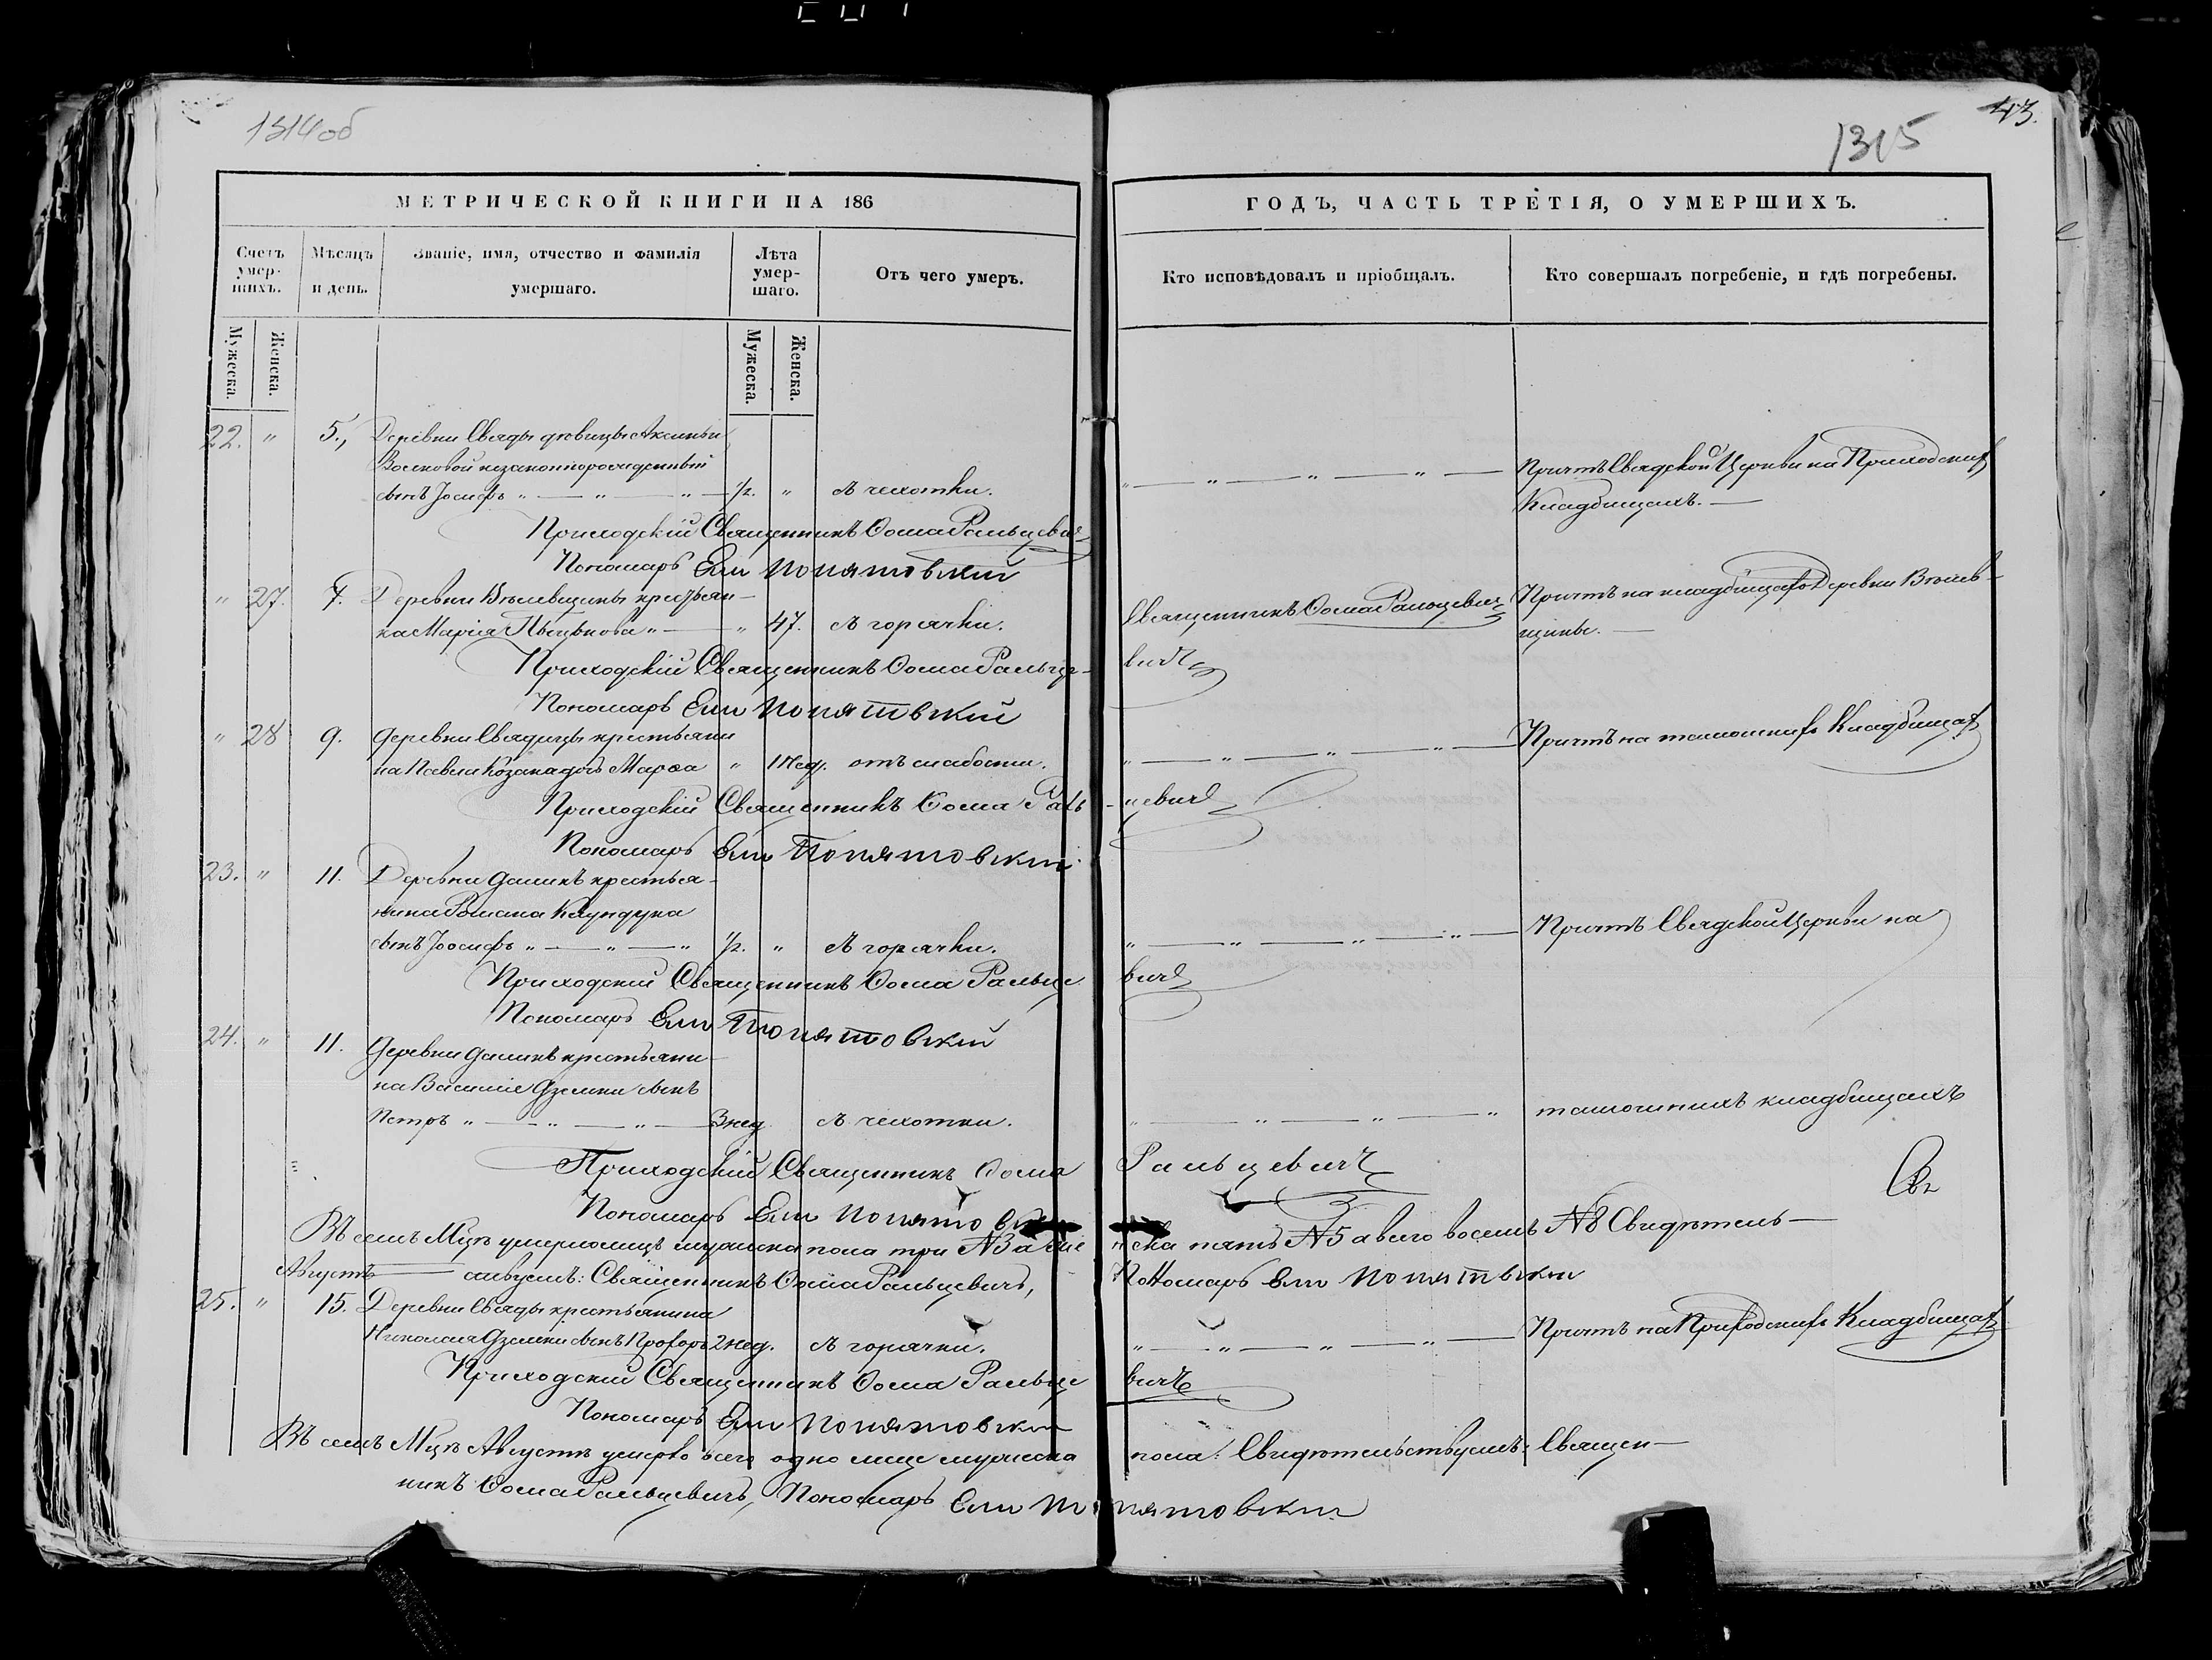 1314об
1315
43.
МЕТРИЧЕСКОЙ КНИГИ НА 186
ГОДЪ, ЧАСТЬ ТРЕТІЯ, О УМЕРШИХЪ.
Счетъ умер-шихъ.
Мѣсяцъ и день.
Званіе, имя, отчество и фамилія умершаго.
Лѣта умер-шаго.
Отъ чего умеръ.
Кто исповѣдовалъ и пріобщалъ.
Кто совершалъ погребеніе, и гдѣ погребены.
Мужеска. Женска.
Мужеска. Женска.
22. " 5. Деревни Свяды дѣвицы Аксиньи
Волковой незаконнорожденный
сынъ Іосифъ " — " — " — 1/2. " съ чехотки. " — " — " — " — Причтъ Свядской Церкви на Приходскихъ
Кладбищахъ. —
Приходскій Священникъ Ѳома Ральцевичъ
Пономарь Ели Понятовскій
" 27. 7. Деревни крестьян-
ка Марія " — " 47. съ горячки. Священникъ Ѳома Ральцевичъ Причтъ на кладбищахъ Деревни
щины. —
Приходскій Священникъ Ѳома Ральце-
вичъ
Пономарь Ели Понятовскій
" 28 9. Деревни Свядицы крестьяни
на Павла Козака дочь Марѳа " 1 нед. отъ слабости. " — " — " — " — Причтъ на тамошнихъ Кладбищахъ
Приходскій Священникъ Ѳома Раль-
цевичъ
Пономарь Ели Понятовскій
23. " 11. Деревни крестья-
нина Романа
сынъ Іосифъ " — " — " 1/2. " съ горячки. " — " — " — " — Причтъ Свядской Церкви на
Приходскій Священникъ Ѳома Ральце
вичъ
Пономарь Ели Понятовскій
24. " 11. Деревни крестьяни-
на Василія Дземки сынъ
Петръ " — " — " — 3 нед. съ чехотки. " — " — " — " тамошнихъ кладбищахъ
Приходскій Священникъ Ѳома
Ральцевичъ
Пономарь Ели Понятовскій
Въ семъ Мцѣ умерло лицъ мужска пола три №3 а же
нска пять №5 а всего восемь №8 Свидѣтель—
Августъ — ствуемъ: Священникъ Ѳома Ральцевичъ,
Пономарь Ели Понятовскій
25. " 15. Деревни Свяды крестьянина
Николая Дземки сынъ Прохоръ 2 нед. съ горячки. " — " — " — " — Причтъ на Приходскихъ Кладбищахъ
Приходскій Священникъ Ѳома Ральце
вичъ
Пономарь Ели Понятовскій
Въ семъ Мцѣ Августѣ умерло всего одно лице мужеска
пола: Свидѣтельствуемъ: Священ—
никъ Ѳома Ральцевичъ, Пономарь Ели Понятовскій